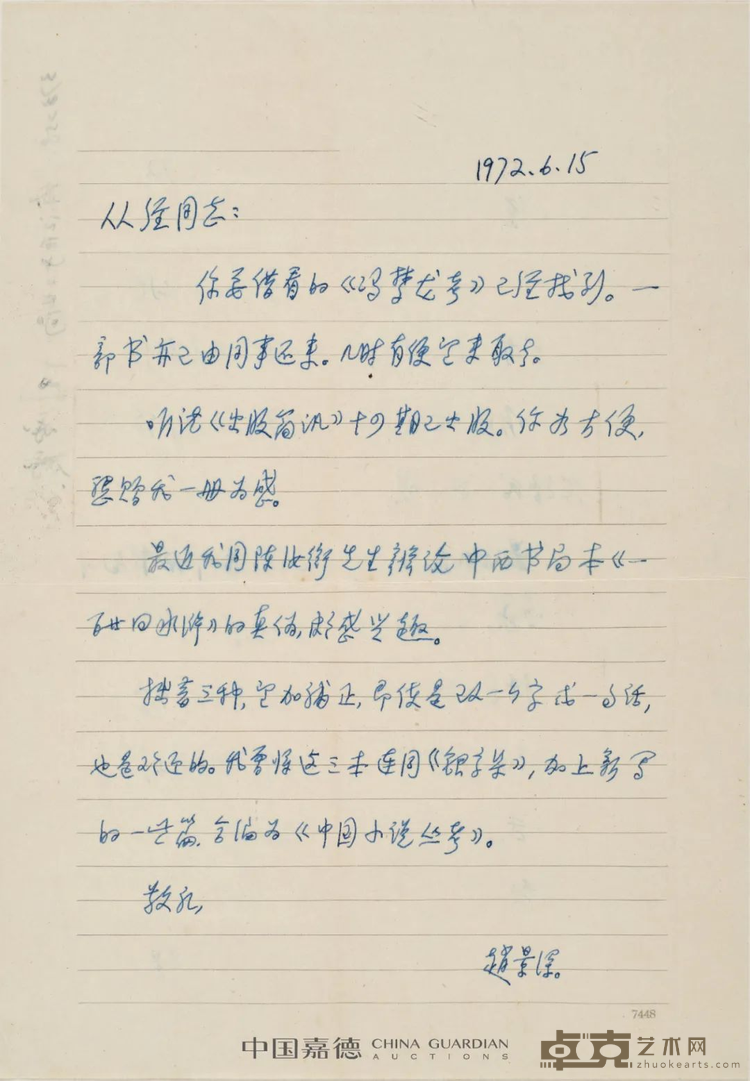 1972.6.15
从经同志:
你要借看的《冯梦龙考》已经找到。一
部书亦已由同事还来。几时有便望来取去。
听说《出版简讯》十四期已出版。你如方便,
望赠我一册为感。
最近我同陈汝衡先生辩论中西书局本《一
百廿回水浒》的真伪,颇感兴趣。
拙著三种,望加补正,即使是改一个字或一句话,
也是欢迎的。我曾将这三本连同《银字集》,加上新写
的一些篇,合编为《中国小说丛考》。
敬礼
赵景深。
7448
中国嘉德 CHINA GUARDIAN
AUCTIONS
卓克艺术网
zhuokearts.com